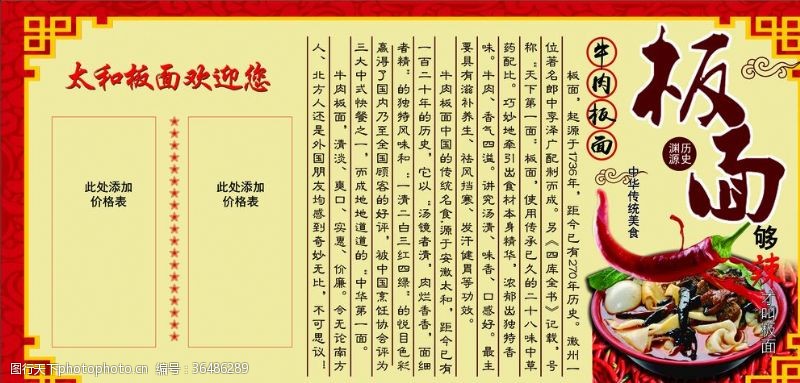 板面
够辣
才叫板面
历史
渊源
中华传统美食
牛肉板面
板面，起源于1736年，距今已有270年历史。潮州一
位著名郎中李泽广配制而成。另《四库全书》记载，号
称：“天下第一面”板面，使用传承已久的二十八味中草
药配比。巧妙地牵引出食材本身精华，浓郁出独特香
味。牛肉、香气四溢。讲究汤清、味香、口感好。最主
要具有滋补养生、祛风挡寒、发汗健胃等功效。
牛肉板面中国的传统名食，源于安徽太和，距今已有
一百二十年的历史，它以：“汤镜者清，肉烂香香，面细
者精”的独特风味和：“一清二白三红四绿”的悦目色彩
赢得了国内乃至全国顾客的好评，被中国烹饪协会评为
三大中式快餐之一，而成地地道道的：“中华第一面。
牛肉板面，清淡、爽口、实惠、价廉。令无论南方
人、北方人还是外国朋友均感到奇妙无比，不可思议！
太和板面欢迎您
此处添加
价格表
此处添加
价格表
图行天下photophoto.cn 编号：36486289